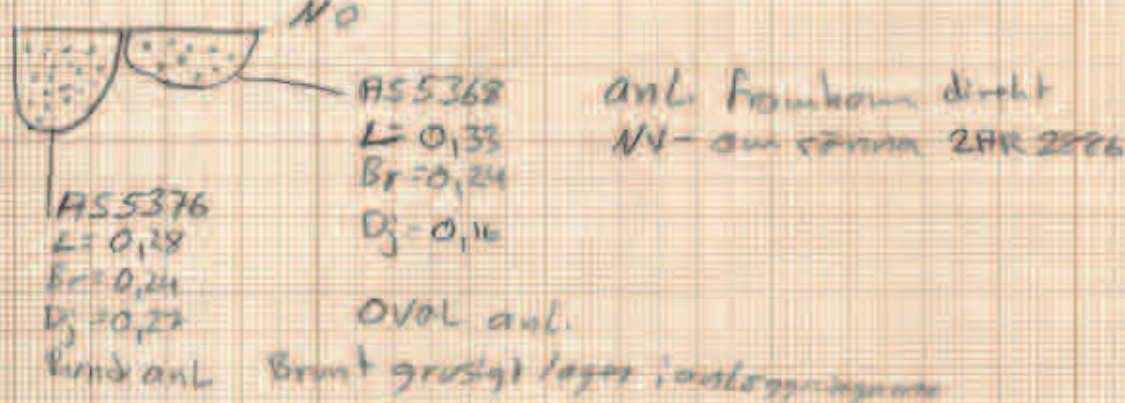 NO
AS5368
L= 0,33
Br=0,24
Dj=0,16
OVAL anl.
anl. framkom direkt
NV- om ränna 2AR
AS5376
L= 0,28
Br=0,24
Dj=0,27
Rund anl
Brunt grusigt lager i anläggningarna